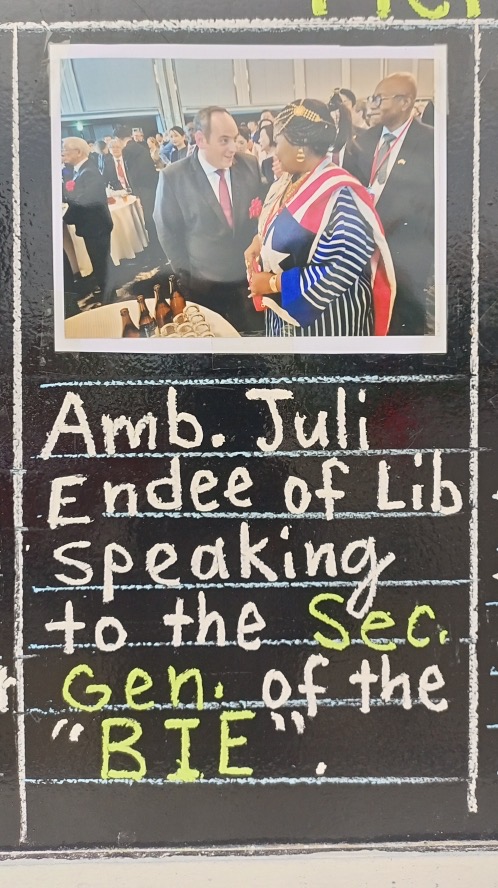 Amb. Juli
Endee of Lib
speaking
to the Sec.
Gen. of the
"BIE".